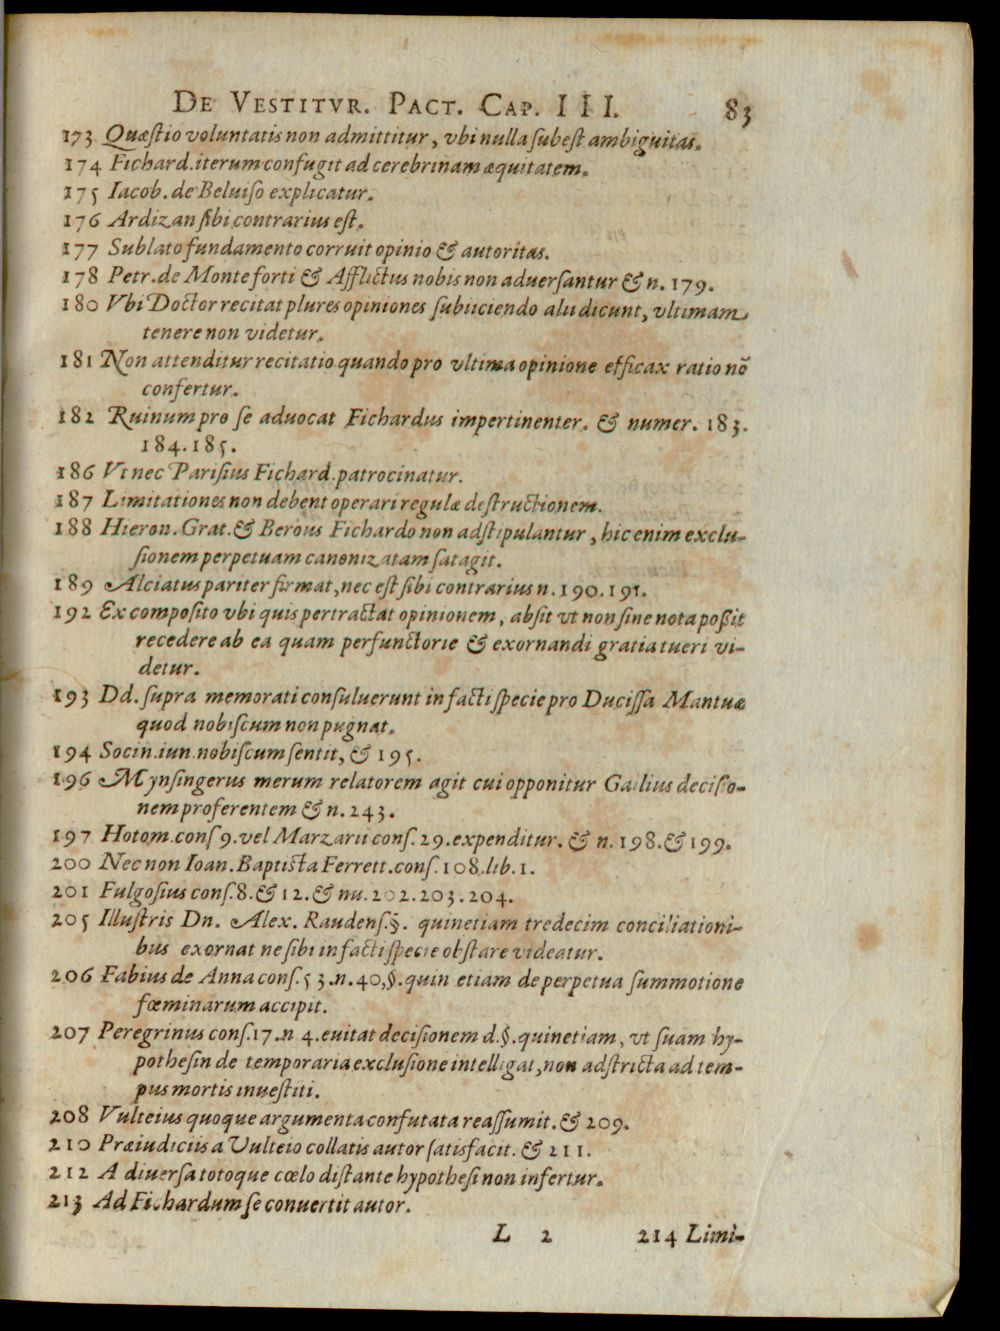 DE VESTITVR. PACT. CAP. III. 83
173 Quæstio voluntatis non admittitur, vbi nulla subest ambiguitas.
174 Fichard. iterum confugit ad cerebrinam æquitatem.
175 Iacob. de Beluiso explicatur.
176 Ardizan sibi contrarius est.
177 Sublato fundamento corruit opinio & autoritas.
178 Petr. de Monteforti & Afflictus nobis non aduersantur & n. 179.
180 Vbi Doctor recitat plures opiniones subiiciendo alii dicunt, vltimam
tenere non videtur.
181 Non attenditur recitatio quando pro vltima opinione efficax ratio nō
confertur.
182 Ruinum pro se aduocat Fichardus impertinenter. & numer. 183.
184. 185.
186 Vt nec Parisius Fichard. patrocinatur.
187 Limitationes non debent operari regulæ destructionem.
188 Hieron. Grat. & Berous Fichardo non adstipulantur, hic enim exclu-
sionem perpetuam canonizatam satagit.
189 Alciatus pariter firmat, nec est sibi contrarius n. 190. 191.
192 Ex composito vbi quis pertractat opinionem, absit vt non sine nota poßit
recedere ab ea quam perfunctorie & exornandi gratia tueri vi-
detur.
193 Dd. supra memorati consuluerunt in facti specie pro Ducissa Mantuæ
quod nobiscum non pugnat.
194 Socin. iun. nobiscum sentit, & 195.
196 Mynsingerus merum relatorem agit cui opponitur Gailius deciso-
nem proferentem & n. 243.
197 Hotom. cons 9. vel Marzarii cons. 29. expenditur. & n. 198. & 199.
200 Nec non Ioan. Baptista Ferrett. cons. 108. lib. 1.
201 Fulgosius cons. 8. & 12. & nu. 202. 203. 204.
205 Illustris Dn. Alex. Raudens. §. quinetiam tredecim conciliationi-
bus exornat ne sibi in facti specie obstare videatur.
206 Fabius de Anna cons. 53. n. 40, §. quin etiam de perpetua summotione
fœminarum accipit.
207 Peregrinus cons. 17. n 4. euitat decisionem d. §. quinetiam, vt suam hy-
pothesin de temporaria exclusione intelligat, non adstricta ad tem-
pus mortis inuestiti.
208 Vulteius quoque argumenta confutata reassumit. & 209.
210 Præiudiciis a Vulteio collatis autor satisfacit. & 211.
212 A diuersa totoque cœlo distante hypothesi non infertur.
213 Ad Fichardum se conuertit autor.
L 2 214 Limi-